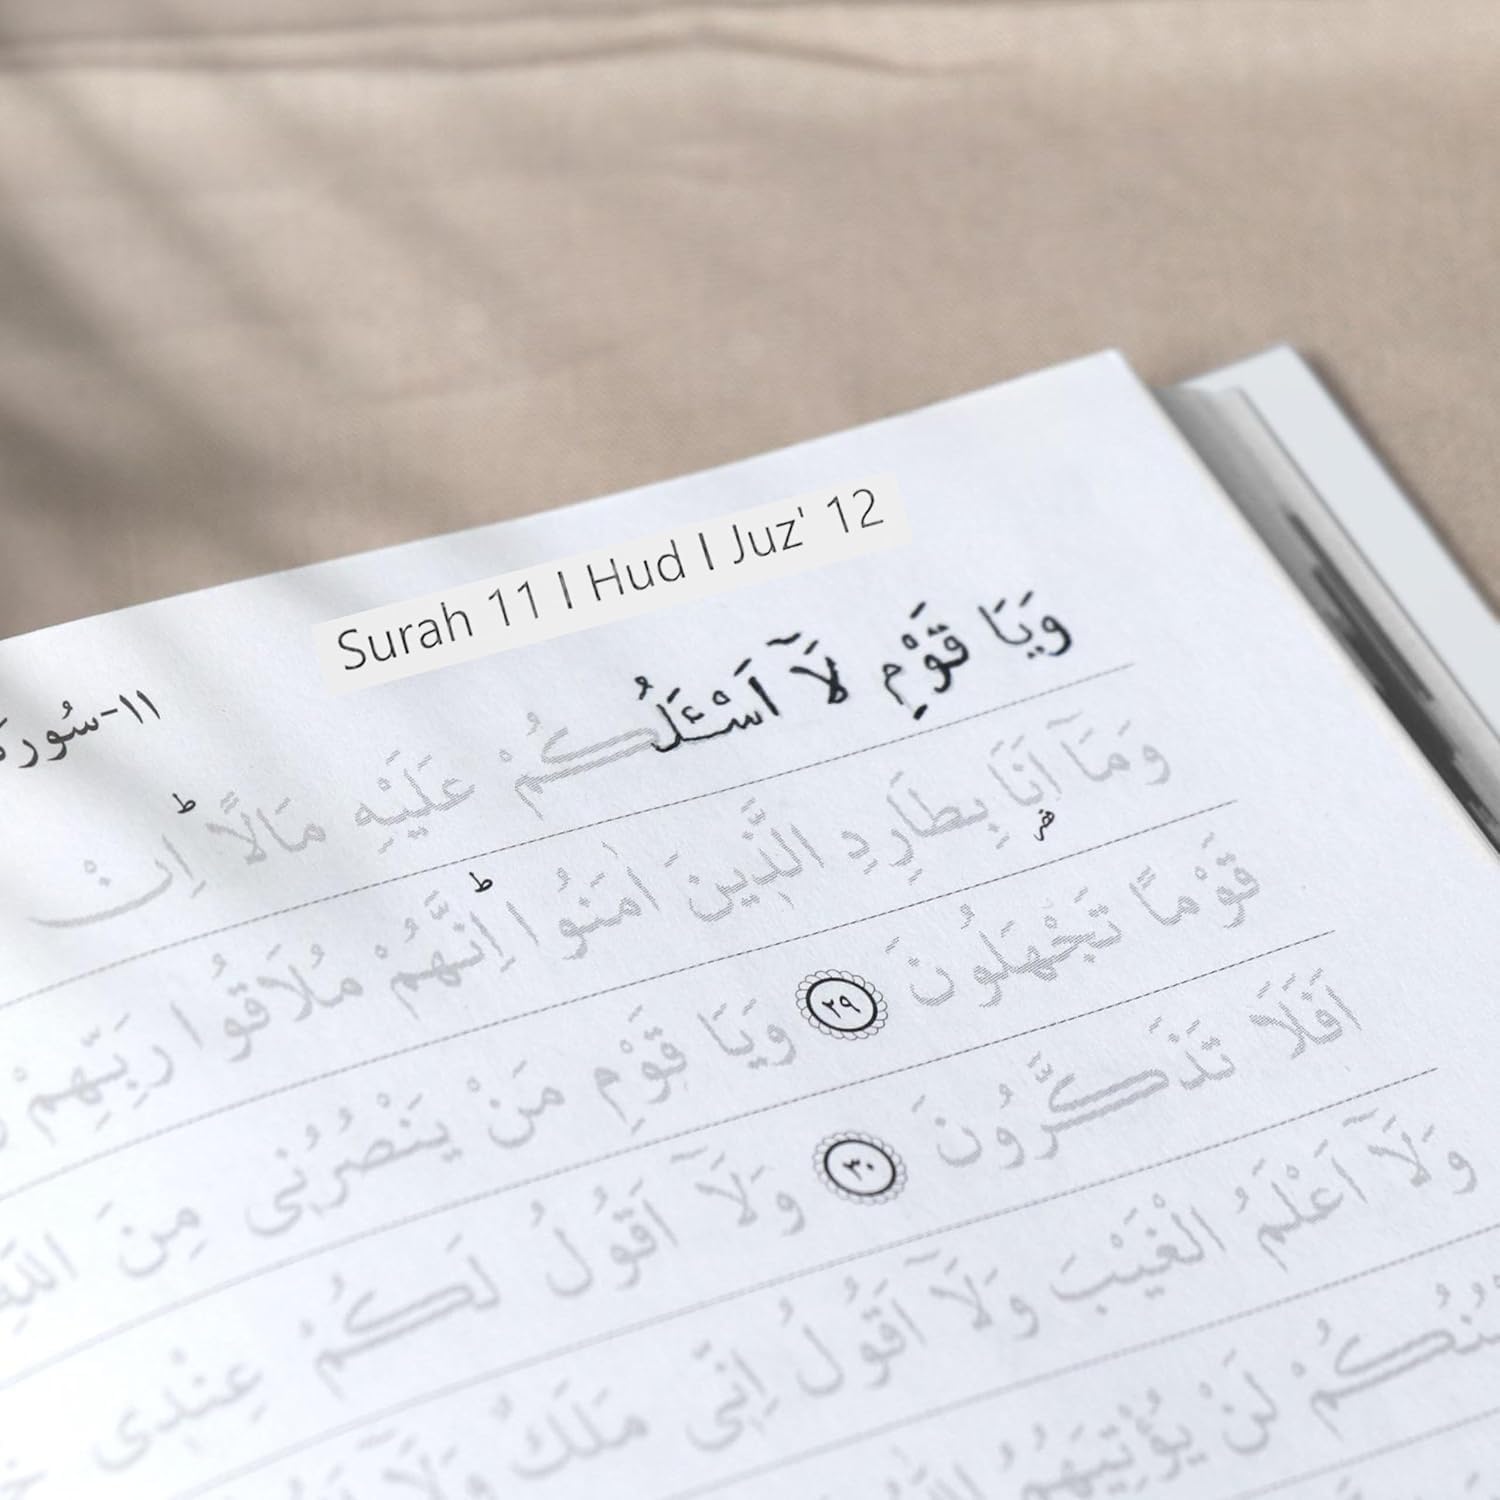 Surah 11 I Hud I Juz' 12
١١-سُورة
وَيَا قَوْمِ لَآ اَسْـَٔلُكُمْ عَلَيْهِ مَالًا ط اِنْ
وَمَآ اَنَا بِطَارِدِ الَّذٖينَ اٰمَنُوا ط اِنَّهُمْ مُلَاقُوا رَبِّهِمْ
قَوْمًا تَجْهَلُونَ ٢٩ وَيَا قَوْمِ مَنْ يَنْصُرُنٖى مِنَ اللّٰهِ
اَفَلَا تَذَكَّرُونَ ٣٠ وَلَآ اَقُولُ لَكُمْ عِنْدٖى
وَلَآ اَعْلَمُ الْغَيْبَ وَلَآ اَقُولُ اِنّٖى مَلَكٌ وَلَآ
لَنْ يُؤْتِيَهُمُ